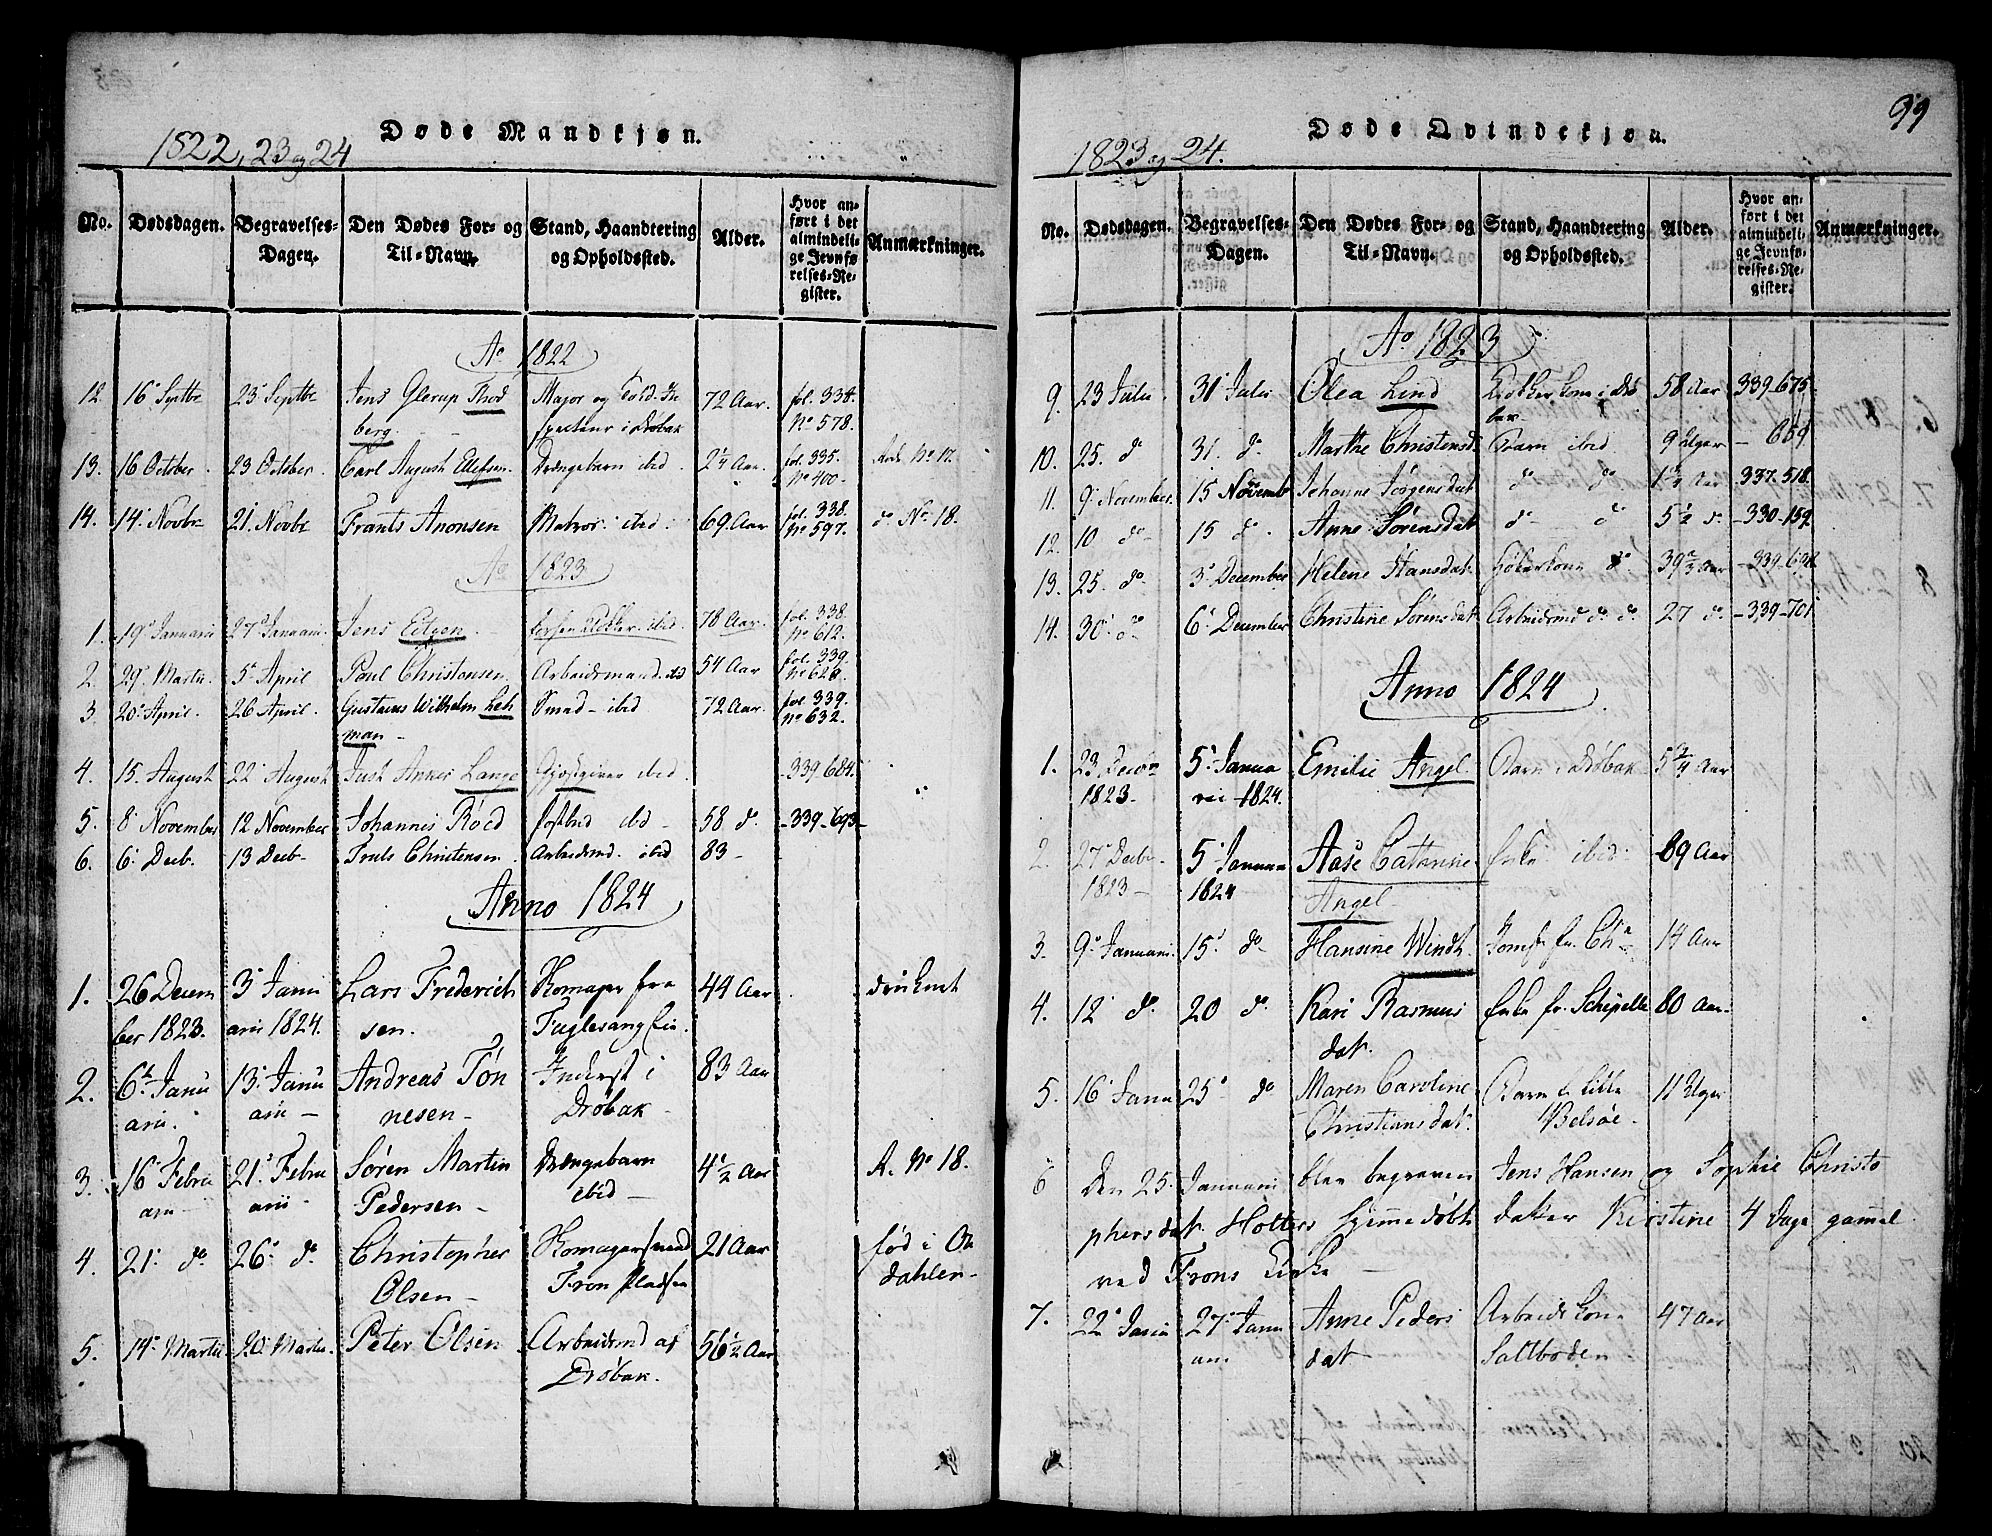 Døde Mandkjøn.
1822, 23 og 24
No. Dødsdagen. Begravelses-Dagen. Den Dødes For- og Til-Navn. Stand, Haandtering og Opholdssted. Alder. Hvor anført i det almindelige Jevnførelses-Register. Anmærkninger.
Ao 1822
12. 16 Septbr 23 Septbr Jens Glerup Thod Major og Told-In 72 Aar. fol. 338.
berg. specteur i Drøbak No 578.
13. 16 October. 23 October. Carl August Ellefsen Drængebarn ibid. 2¼ Aar. fol. 335. No 17.
No 400.
14. 14 Novbr 21 Novbr Frants Anonsen Matros ibid. 69 Aar fol. 338. do No 18.
No 597.
Ao 1823
1. 19 Januarii 27 Januarii. Jens Eilgen. ibid. 78 Aar. fol. 338.
No 612.
2. 29. Martii. 5 April Poul Christensen. Arbeidsmand. ibid 54 Aar fol. 339.
No 628.
3. 20 April. 26 April. Gustavus Wilhelm Leh Smed - ibid 72 Aar. fol 339.
man - No 632.
4. 15. August 22 August Just Anker Lange Gjæstgiver ibid. - 339 684.
5. 8 November 12 November Johannes Röed ibid - 58 do. - 339 - 693 -
6. 6 Decb. 13 Decb - Truls Christensen. Arbeidsmd. ibid 83 -
Anno 1824
1. 26 Decem 3 Janu Lars Frederich Komager fra 44 Aar druknet
ber 1823. arii 1824. sen. Fuglesang
2. 6 Janu 13 Janu Andreas Tön Inderst i 83 Aar
arii. arii - nesen - Drøbak -
3. 16 Febru 21 Febru Sören Martin Drængebarn 4½ Aar A. No 18.
arii - arii - Pedersen - ibid -
4. 21 do 26 do Christopher 21 Aar fød i O
Olsen - Fron Pladsen dahlen -
5. 14 Martii 20 Martii. Peter Olsen Arbeidsmd af 56½ Aar
Drøbak.
99
Døde Qvindekjøn.
1823 og 24.
No. Dødsdagen. Begravelses-Dagen. Den Dødes For- og Til-Navn. Stand, Haandtering og Opholdssted. Alder. Hvor anført i det almindelige Jevnførelses-Register. Anmærkninger.
Ao 1823
9. 23 Julii 31 Julii Olea Lind kone i Drö 58 Aar 339-675.
10. 25. do 31. do. Marthe Christensd. Barn ibid 9 Uger - 659
11. 9 November. 15 Novemb Johanne Jörgensdat do do Aar 337. 518.
12. 10 do 15 do. Anne Sörensdat do - do 5½ do. - 330-159.
13. 25. do. 3 December Helene Hansdat. do 39 Aar - 339-698.
14. 30 do 6 December Christine Sörensdat Arbeidsmd do do. 27 do. - 339-701
Anno 1824
1. 23 Decbr 5 Janua Emilie Angel Barn i Dröbak 5¾ Aar
1823. rii 1824.
2. 27 Decbr. 5 Janua Aase Catarine Enke ibid. 89 Aar
1823 - 1824 Angel
3. 9 Januarii. 15 do Hansine Windt. Jomfr. 14 Aar
4. 12 do. 20 do. Kari Rasmus Enke fr. Schipelle 80 Aar.
dat.
5. 16 Janu 25 do Maren Caroline Barn f. lille 11 Uger
Christiansdat. Belsöe.
6 Den 25. Januarii blev begraven Jens Hansen og Sophie Christo
phersdat. Holters hjemmedöbt datter Kirstine 4 Dage gammel.
ved Frons Kirke -
7. 22 Janu 27 Janu Anne Peders Arbeids kone 47 Aar
dat Saltboden